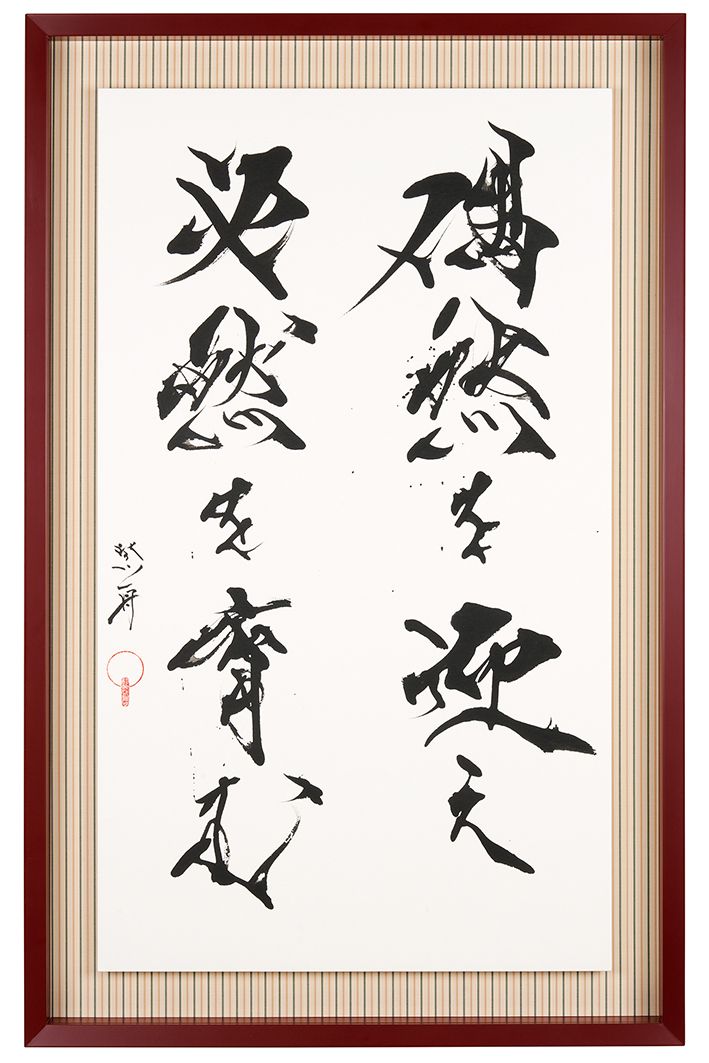 偶然を迎え
必然を育む